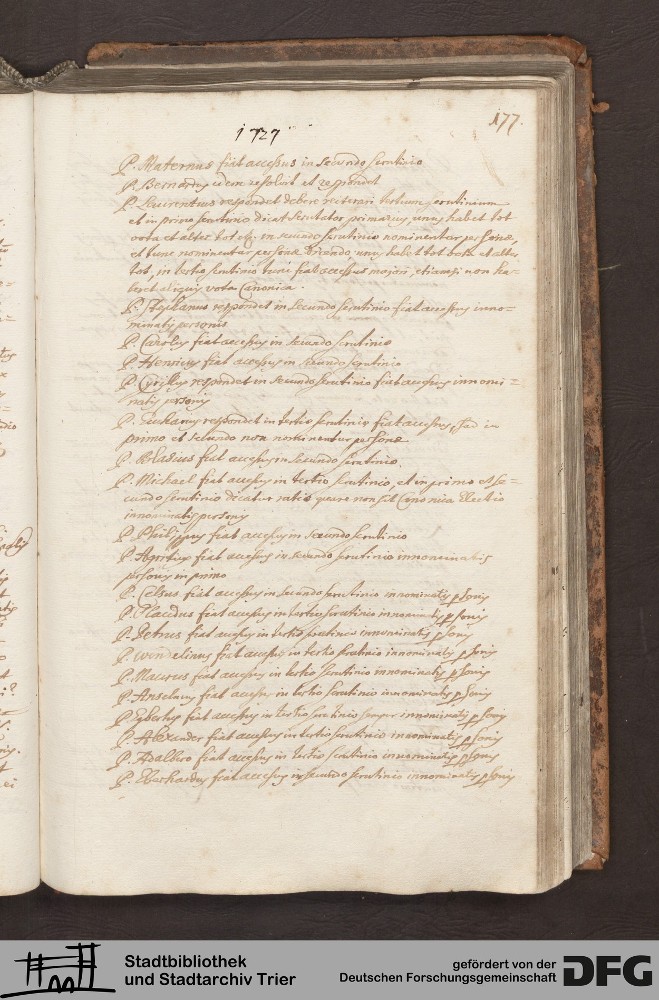 177.
1727
P. Maternus fiat accessus in secundo scrutinio
P. Bernardus idem resolvit et respondet
P. Laurentius respondet debere reiterari tertium scrutinium
et in primo scrutinio dicat scrutator primarius, unus habet tot
vota et alter tot &c. in secundo scrutinio nominentur personae,
et tunc nominentur personae dicendo unus habet tot vota et alter
tot, in tertio scrutinio fiat accessus majori, etiamsi non ha-
beret aliquis vota Canonica.
P. Stephanus respondet in secundo scrutinio fiat accessus inno-
minatis personis
P. Carolus fiat accessus in secundo scrutinio
P. Henricus fiat accessus in secundo scrutinio
P. Cyrillus respondet in secundo scrutinio fiat accessus innomi-
natis personis
P. Eucharius respondet in tertio scrutinio fiat accessus, sed in
primo et secundo non nominentur personae
P. fiat accessus in secundo scrutinio.
P. Michael fiat accessus in tertio scrutinio, et in primo et se-
cundo scrutinio dicatur ratio quare non sit Canonica Electio
innominatis personis
P. Philippus fiat accessus in secundo scrutinio
P. Agritius fiat accessus in secundo scrutinio innominatis
personis in primo
P. Celsus fiat accessus in secundo scrutinio innominatis psonis
P. Placidus fiat accessus in tertio scrutinio innominatis psonis
P. Petrus fiat accessus in tertio scrutinio innominatis psonis
P. Wendelinus fiat accessus in tertio scrutinio innominatis psonis
P. Maurus fiat accessus in tertio scrutinio innominatis psonis
P. Anselmus fiat accessus in tertio scrutinio innominatis psonis
P. Egbertus fiat accessus in tertio scrutinio semper innominatis psonis
P. Alexander fiat accessus in tertio scrutinio innominatis psonis
P. Adalbero fiat accessus in tertio scrutinio innominatis psonis
P. Eberhardus fiat accessus in secundo scrutinio innominatis psonis
Stadtbibliothek
und Stadtarchiv Trier
gefördert von der
Deutschen Forschungsgemeinschaft
DFG